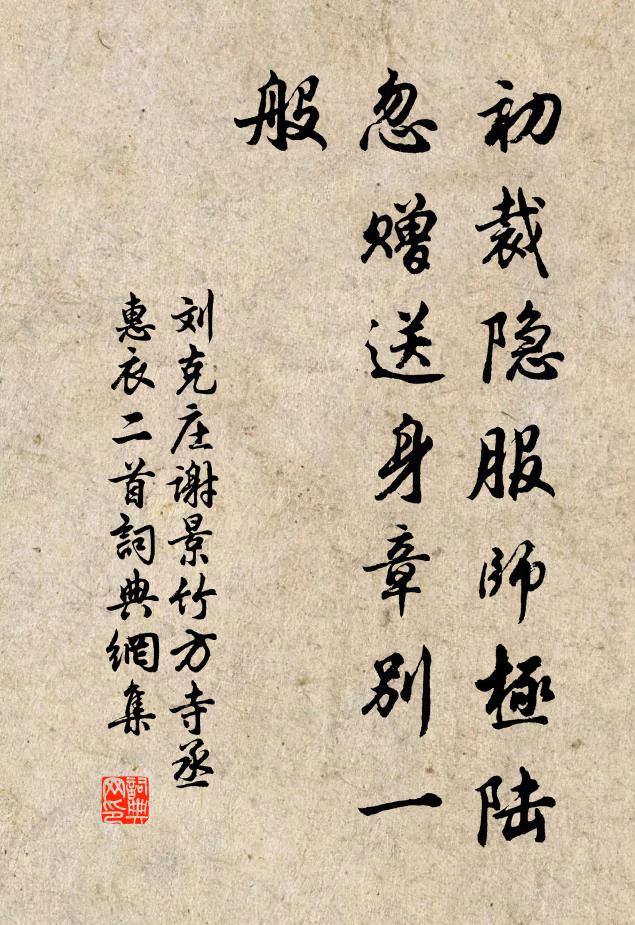 初裁隐服師極陆
忽赠送身章别一
般
刘克庄谢景竹方寺丞
惠衣二首詞典網集
詞典网印